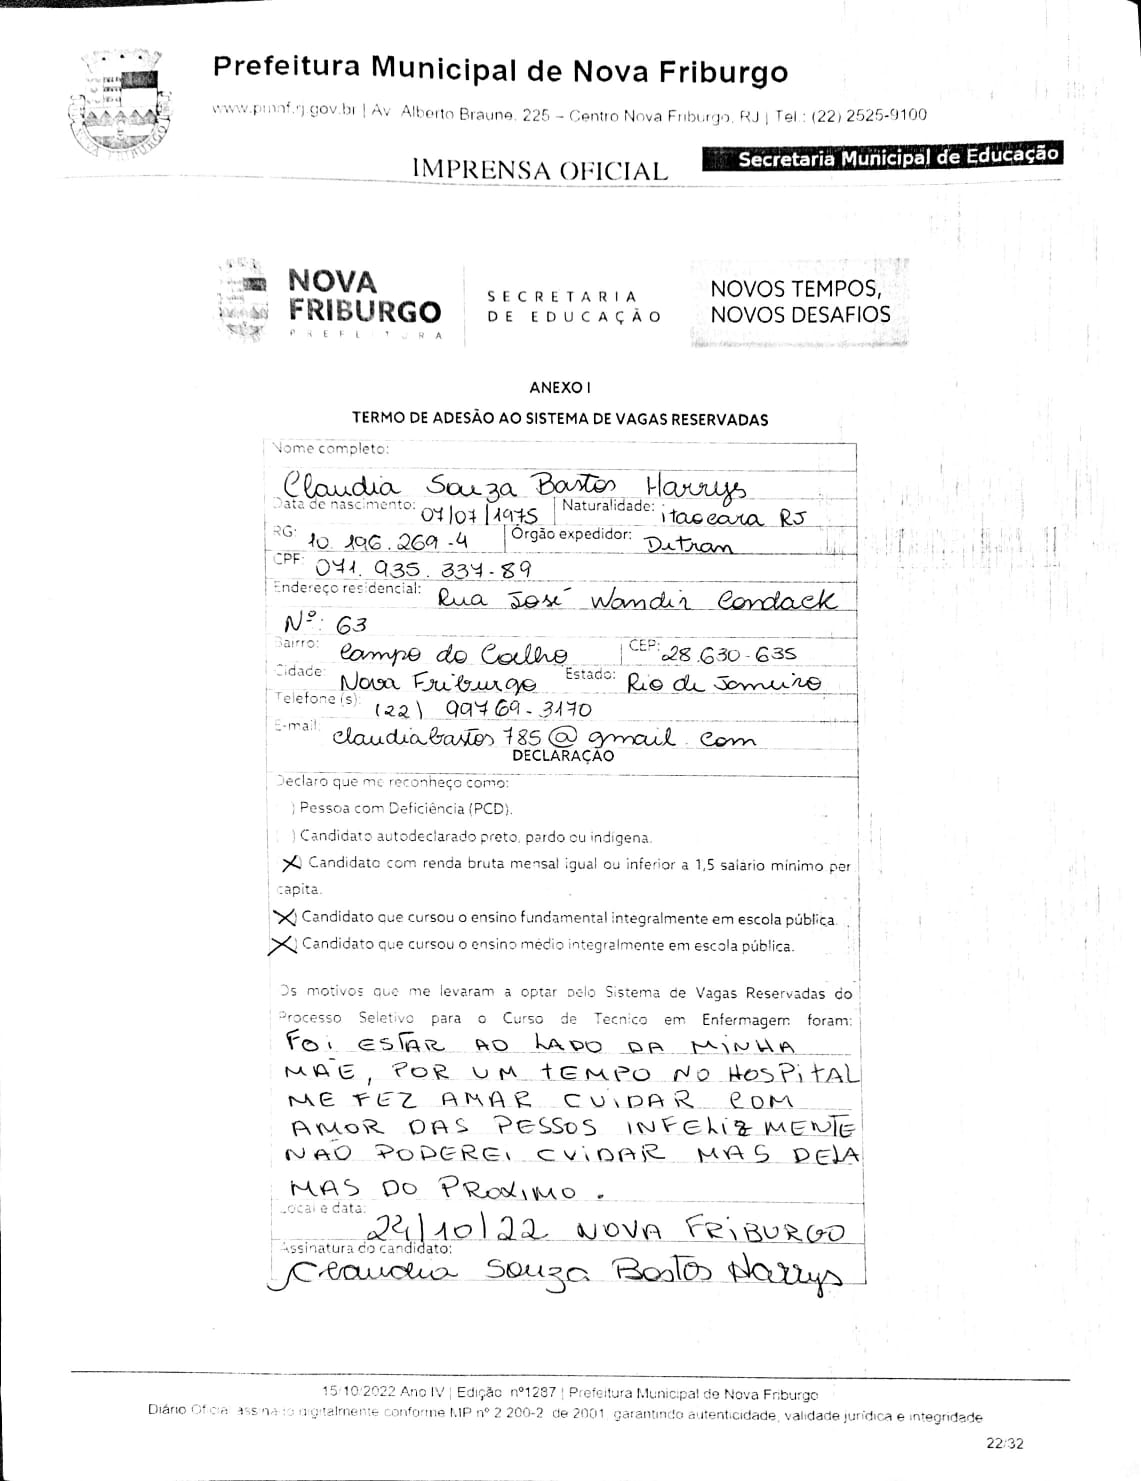 Prefeitura Municipal de Nova Friburgo
www.pmnf.rj.gov.br | Av. Alberto Braune, 225 – Centro Nova Friburgo, RJ | Tel.: (22) 2525-9100
IMPRENSA OFICIAL
Secretaria Municipal de Educação
NOVA FRIBURGO
PREFEITURA
SECRETARIA
DE EDUCAÇÃO
NOVOS TEMPOS,
NOVOS DESAFIOS
ANEXO I
TERMO DE ADESÃO AO SISTEMA DE VAGAS RESERVADAS
Nome completo:
Claudia Souza Bastos Harrys
Data de nascimento: 07/07/1975 Naturalidade: itaocara RJ
RG: 10.196.269-4 Órgão expedidor: Detran
CPF: 071.935.337-89
Endereço residencial: Rua José Wandir Cordack
Nº: 63
Bairro: Campo do Coelho CEP: 28.630-635
Cidade: Nova Friburgo Estado: Rio de Janeiro
Telefone (s): (22) 99769-3170
E-mail: claudiabastos785@gmail.com
DECLARAÇÃO
Declaro que me reconheço como:
) Pessoa com Deficiência (PCD).
) Candidato autodeclarado preto, pardo ou indígena.
X Candidato com renda bruta mensal igual ou inferior a 1,5 salário mínimo per
capita.
X) Candidato que cursou o ensino fundamental integralmente em escola pública.
X) Candidato que cursou o ensino médio integralmente em escola pública.
Os motivos que me levaram a optar pelo Sistema de Vagas Reservadas do
Processo Seletivo para o Curso de Técnico em Enfermagem foram:
FOi ESTAR AO LADO DA MINHA
MÃE, POR UM tEMPO NO HOSPitAL
ME FEZ AMAR CUiDAR COM
AMOR DAS PESSOS INFELIZMENTE
NÃO PODEREi CUiDAR MAS DELA
MAS DO PROXiMO.
Local e data: 24/10/22 NOVA FRiBURGO
Assinatura do candidato:
Claudia Souza Bastos Harrys
15/10/2022 Ano IV | Edição nº1287 | Prefeitura Municipal de Nova Friburgo
Diário Oficial assinado digitalmente conforme MP nº 2.200-2 de 2001, garantindo autenticidade, validade jurídica e integridade
22/32